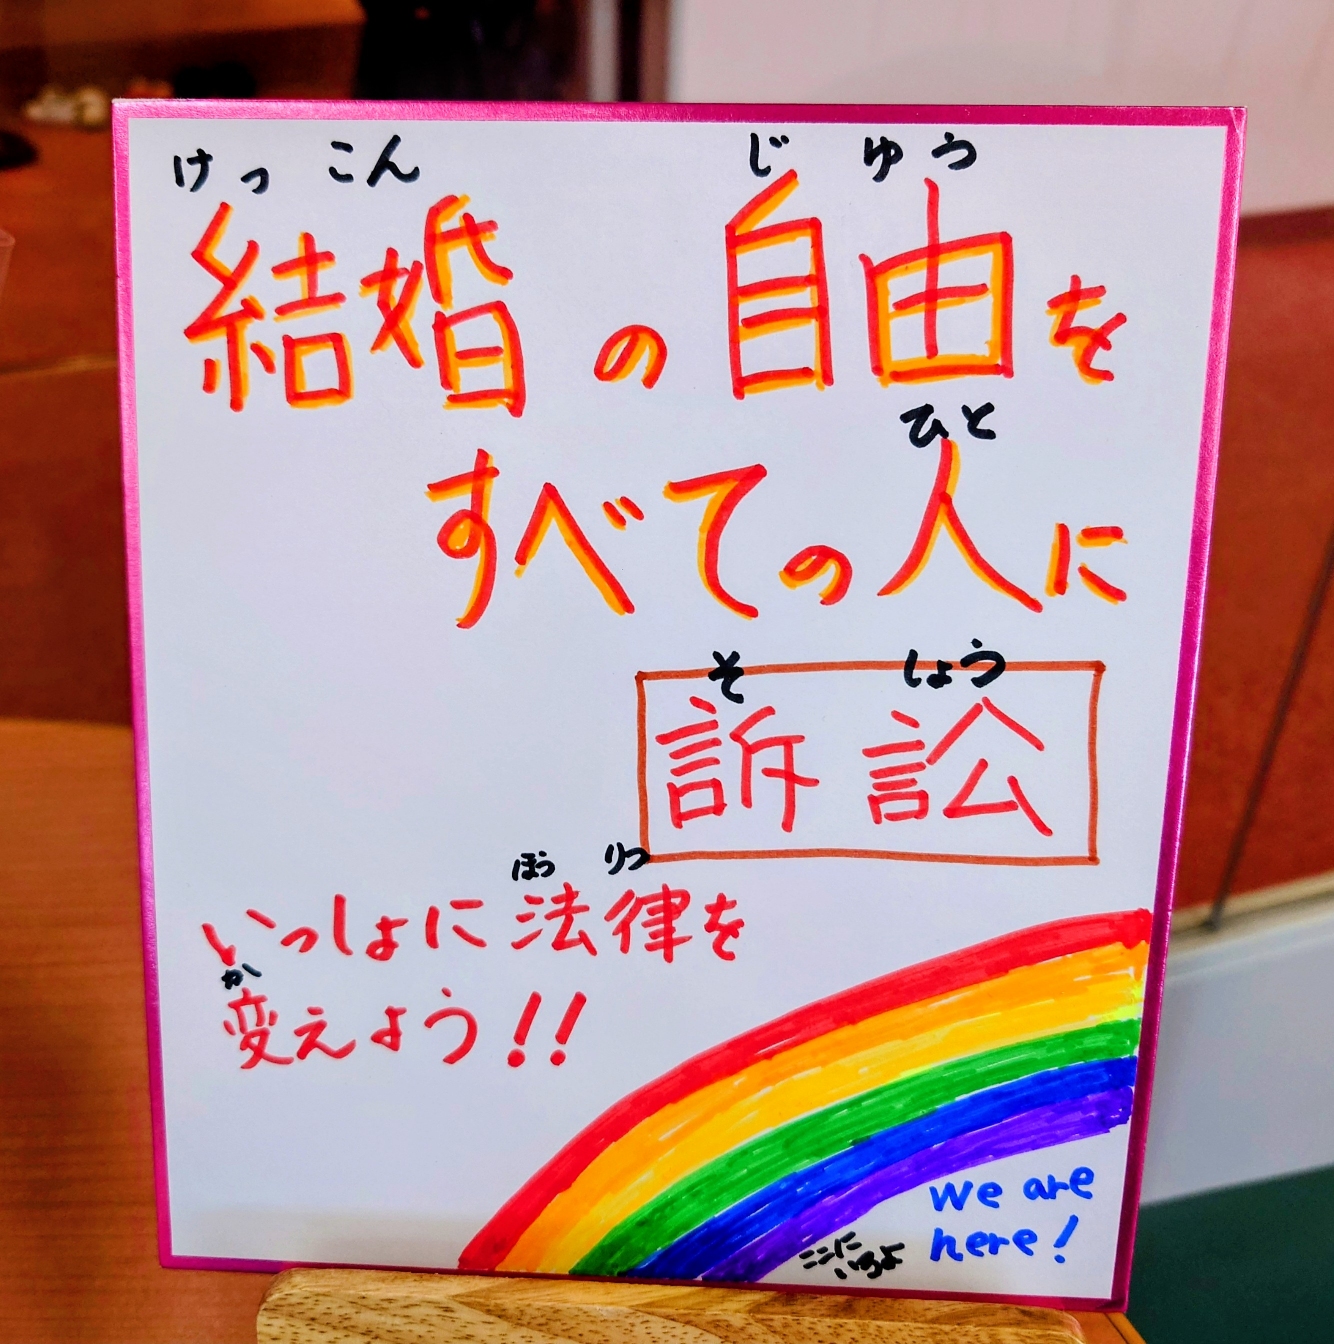 けっ こん じ ゆう
結婚の自由を
ひと
すべての人に
そ しょう
訴訟
ほう りつ
いっしょに法律を
か
変えよう!!
We are
here!
ここに
いるよ